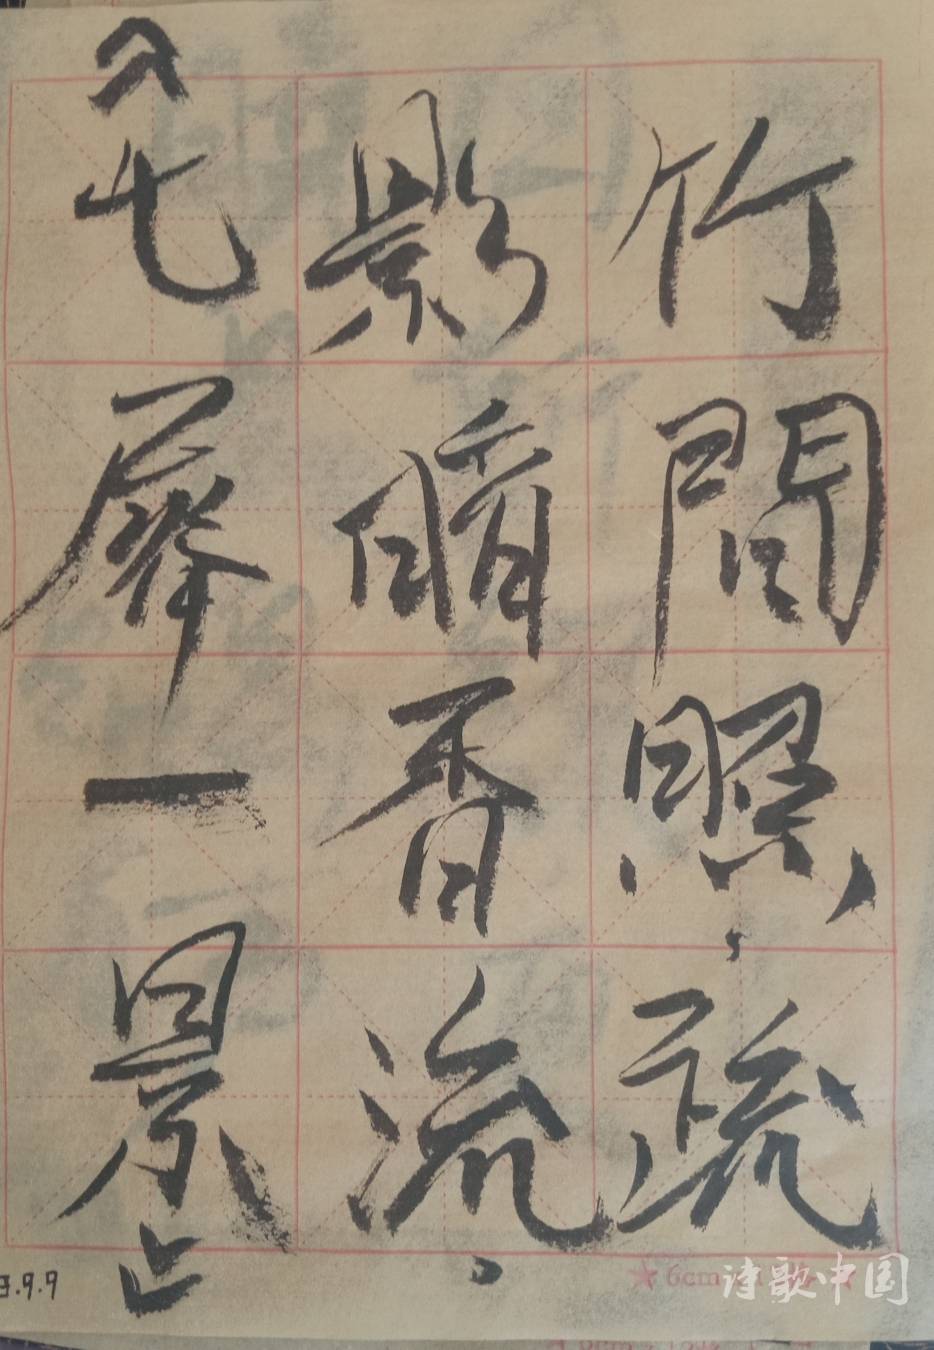 竹間照，疏
影暗香流。
《七犀一景》
3.9.9
6cm
诗歌中国